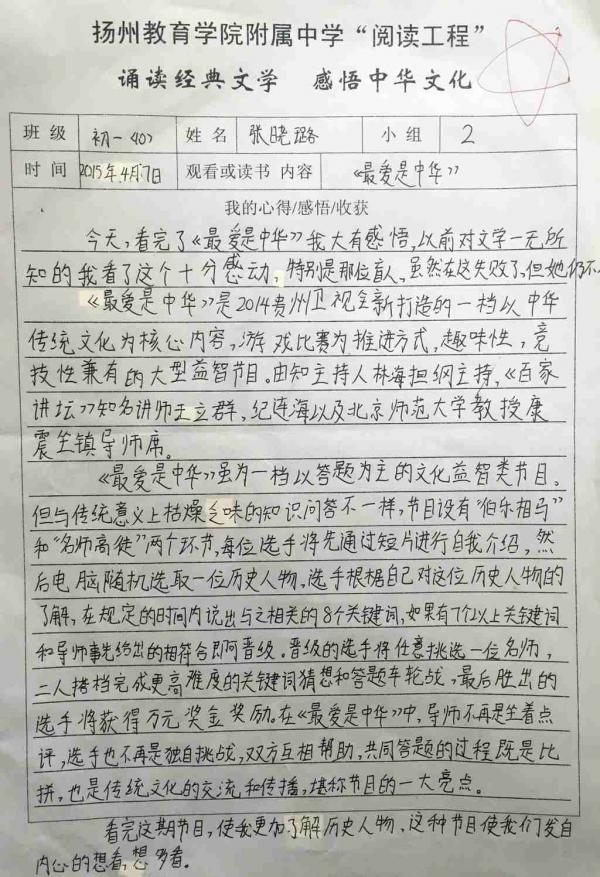 扬州教育学院附属中学“阅读工程”
诵读经典文学 感悟中华文化
班级 初一(10) 姓名 张晓璐 小组 2
时间 2015年4月7日 观看或读书 内容 《最爱是中华》
我的心得/感悟/收获
今天,看完了《最爱是中华》我大有感悟,以前对文学一无所
知的我看了这个十分感动,特别是那位盲人,虽然在这失败了,但她仍不
《最爱是中华》是2014贵州卫视全新打造的一档以中华
传统文化为核心内容,游戏比赛为推进方式,趣味性,竞
技性兼有的大型益智节目。由知主持人林海担纲主持,《百家
讲坛》知名讲师王立群,纪连海以及北京师范大学教授康
震坐镇导师席。
《最爱是中华》虽为一档以答题为主的文化益智类节目,
但与传统意义上枯燥乏味的知识问答不一样,节目设有“伯乐相马”
和“名师高徒”两个环节,每位选手将先通过短片进行自我介绍,然
后电脑随机选取一位历史人物,选手根据自己对这位历史人物的
了解,在规定的时间内说出与之相关的8个关键词,如果有7个以上关键词
和导师事先给出的相符合即可晋级。晋级的选手将任意挑选一位名师,
二人搭档完成更高难度的关键词猜想和答题车轮战,最后胜出的
选手将获得万元奖金奖励。在《最爱是中华》中,导师不再是坐着点
评,选手也不再是独自挑战,双方互相帮助,共同答题的过程既是比
拼,也是传统文化的交流和传播,堪称节目的一大亮点。
看完这期节目,使我更加了解历史人物,这种节目使我们发自
内心的想看,想多看。